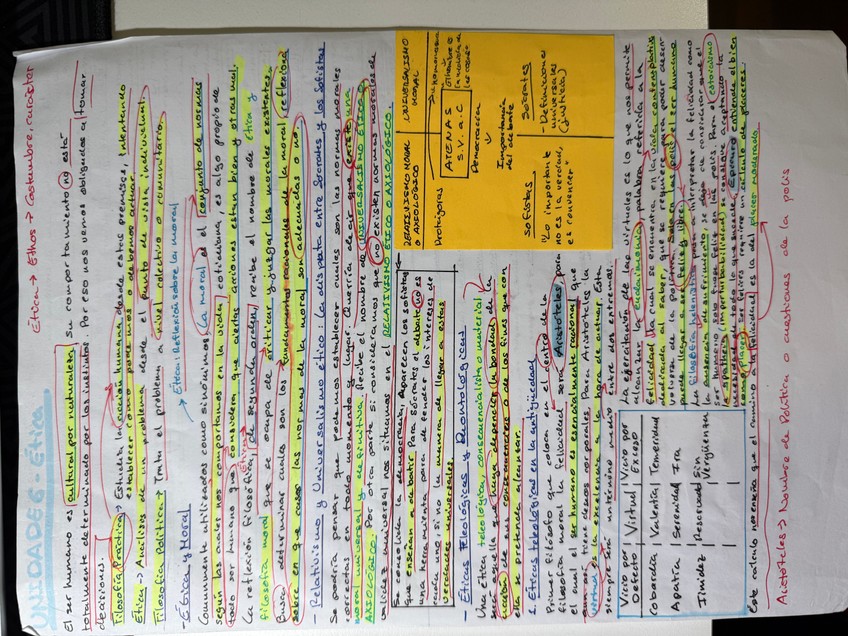 UNIDAD 6 - Ética
Ética → Ethos → Costumbre, carácter
El ser humano es cultural por naturaleza, su comportamiento no está
totalmente determinado por los instintos. Por eso nos vemos obligados a tomar
decisiones.
Filosofía Práctica → Estudia la acción humana, desde estas premisas, intentando
establecer como podemos o debemos actuar.
Ética → Análisis de un problema desde el punto de vista individual.
Filosofía Política → Trata el problema a nivel colectivo o comunitario.
- Ética y Moral
Ética: Reflexión sobre la moral
Comunmente utilizados como sinónimos. La moral es el conjunto de normas
según las cuales nos comportamos en la vida cotidiana, es algo propio de
todo ser humano que considera que ciertas acciones estan bien y otras mal.
Ética
La reflexión filosófica, de segundo orden, recibe el nombre de ética y
filosofía moral que se ocupa de criticar y juzgar las morales existentes.
Busca determinar cuales son los fundamentos racionales de la moral, reflexiona
sobre en que casos las normas de la moral son adecuadas o no.
- Relativismo y Universalismo ético: la disputa entre Sócrates y los Sofistas
Se podría pensar que podemos establecer cuales son las normas morales
correctas en todo momento y lugar. Querría decir que existe una
moral universal y definitiva. Recibe el nombre de UNIVERSALISMO ÉTICO o
AXIOLÓGICO. Por otra parte si consideramos que no existen normas morales de
validez universal nos situamos en el RELATIVISMO ÉTICO O AXIOLÓGICO.
Se consolida la democracia, aparecen los sofistas
que enseñan a debatir. Para sócrates el debate no es
una herramienta para defender los intereses de
cada uno, si no la manera de llegar a estas
verdades universales.
RELATIVISMO MORAL O AXIOLÓGICO
UNIVERSALISMO MORAL
Protágoras
ATENAS
S. V. a. C
Democracia
Importancia del debate
sofistas
"Lo importante no es la verdad, es convencer"
Sócrates
- Definiciones universales (justicia)
- Éticas Teleológicas y Deontológicas
Una Ética teleológica, consecuencialista o material
será aquella que haga depender la bondad de la
acción de sus consecuencias o de los fines que con
ella se pretenda alcanzar.
1. Éticas teleológicas en la antigüedad
Primer filósofo que colocara en el centro de la
filosofía moral la felicidad será Aristóteles, para
el cual el ser humano es animal racional que
aun así tiene deseos corporales. Para Aristóteles la
virtud es la excelencia a la hora de actuar. Esta
siempre será un término medio entre dos extremos.
Vicio por Defecto | Virtud | Vicio por Exceso
Cobardía | Valentía | Temeridad
Apatía | Serenidad | Ira
Timidez | Reservado | Sin Vergüenza
La ejercitación de las virtudes es lo que nos permite
alcanzar la eudaimonía, palabra referida a la
felicidad la cual se encuentra en la vida contemplativa
dedicada al saber, que se refuerza a poder desen-
volverse de la política. Solo en la polis el ser humano
puede llegar a ser feliz y libre.
La filosofía helenística pasa a interpretar la felicidad como
la ausencia de sufrimiento, se deja de considerar que el
ser humano solo puede ser feliz en las polis. Para el estoicismo
la apatheia (imperturbabilidad) se consigue aceptando la
necesidad de todo lo que sucede. Epicuro entiende el bien
como placer. Ser felices requiere un cálculo de placeres.
Este calculo nos enseña que el camino a la felicidad es la del placer moderado.
Aristóteles → Hombre de Política o cuestiones de la polis